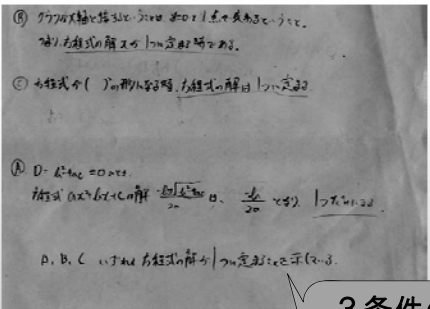 Ⓑ グラフがx軸と接するということは y=0と1点で交わるということ。
つまり、方程式の解xが1つに定まる時である。
Ⓒ 方程式が( )²の形になる時、方程式の解は1つに定まる
Ⓐ D=b²-4ac=0のとき、
方程式 ax²+bx+cの解 -b±√b²-4ac/2a は、-b/2a となり、1つだけになる
A, B, C いずれも方程式の解が1つに定まることを示している。
3条件